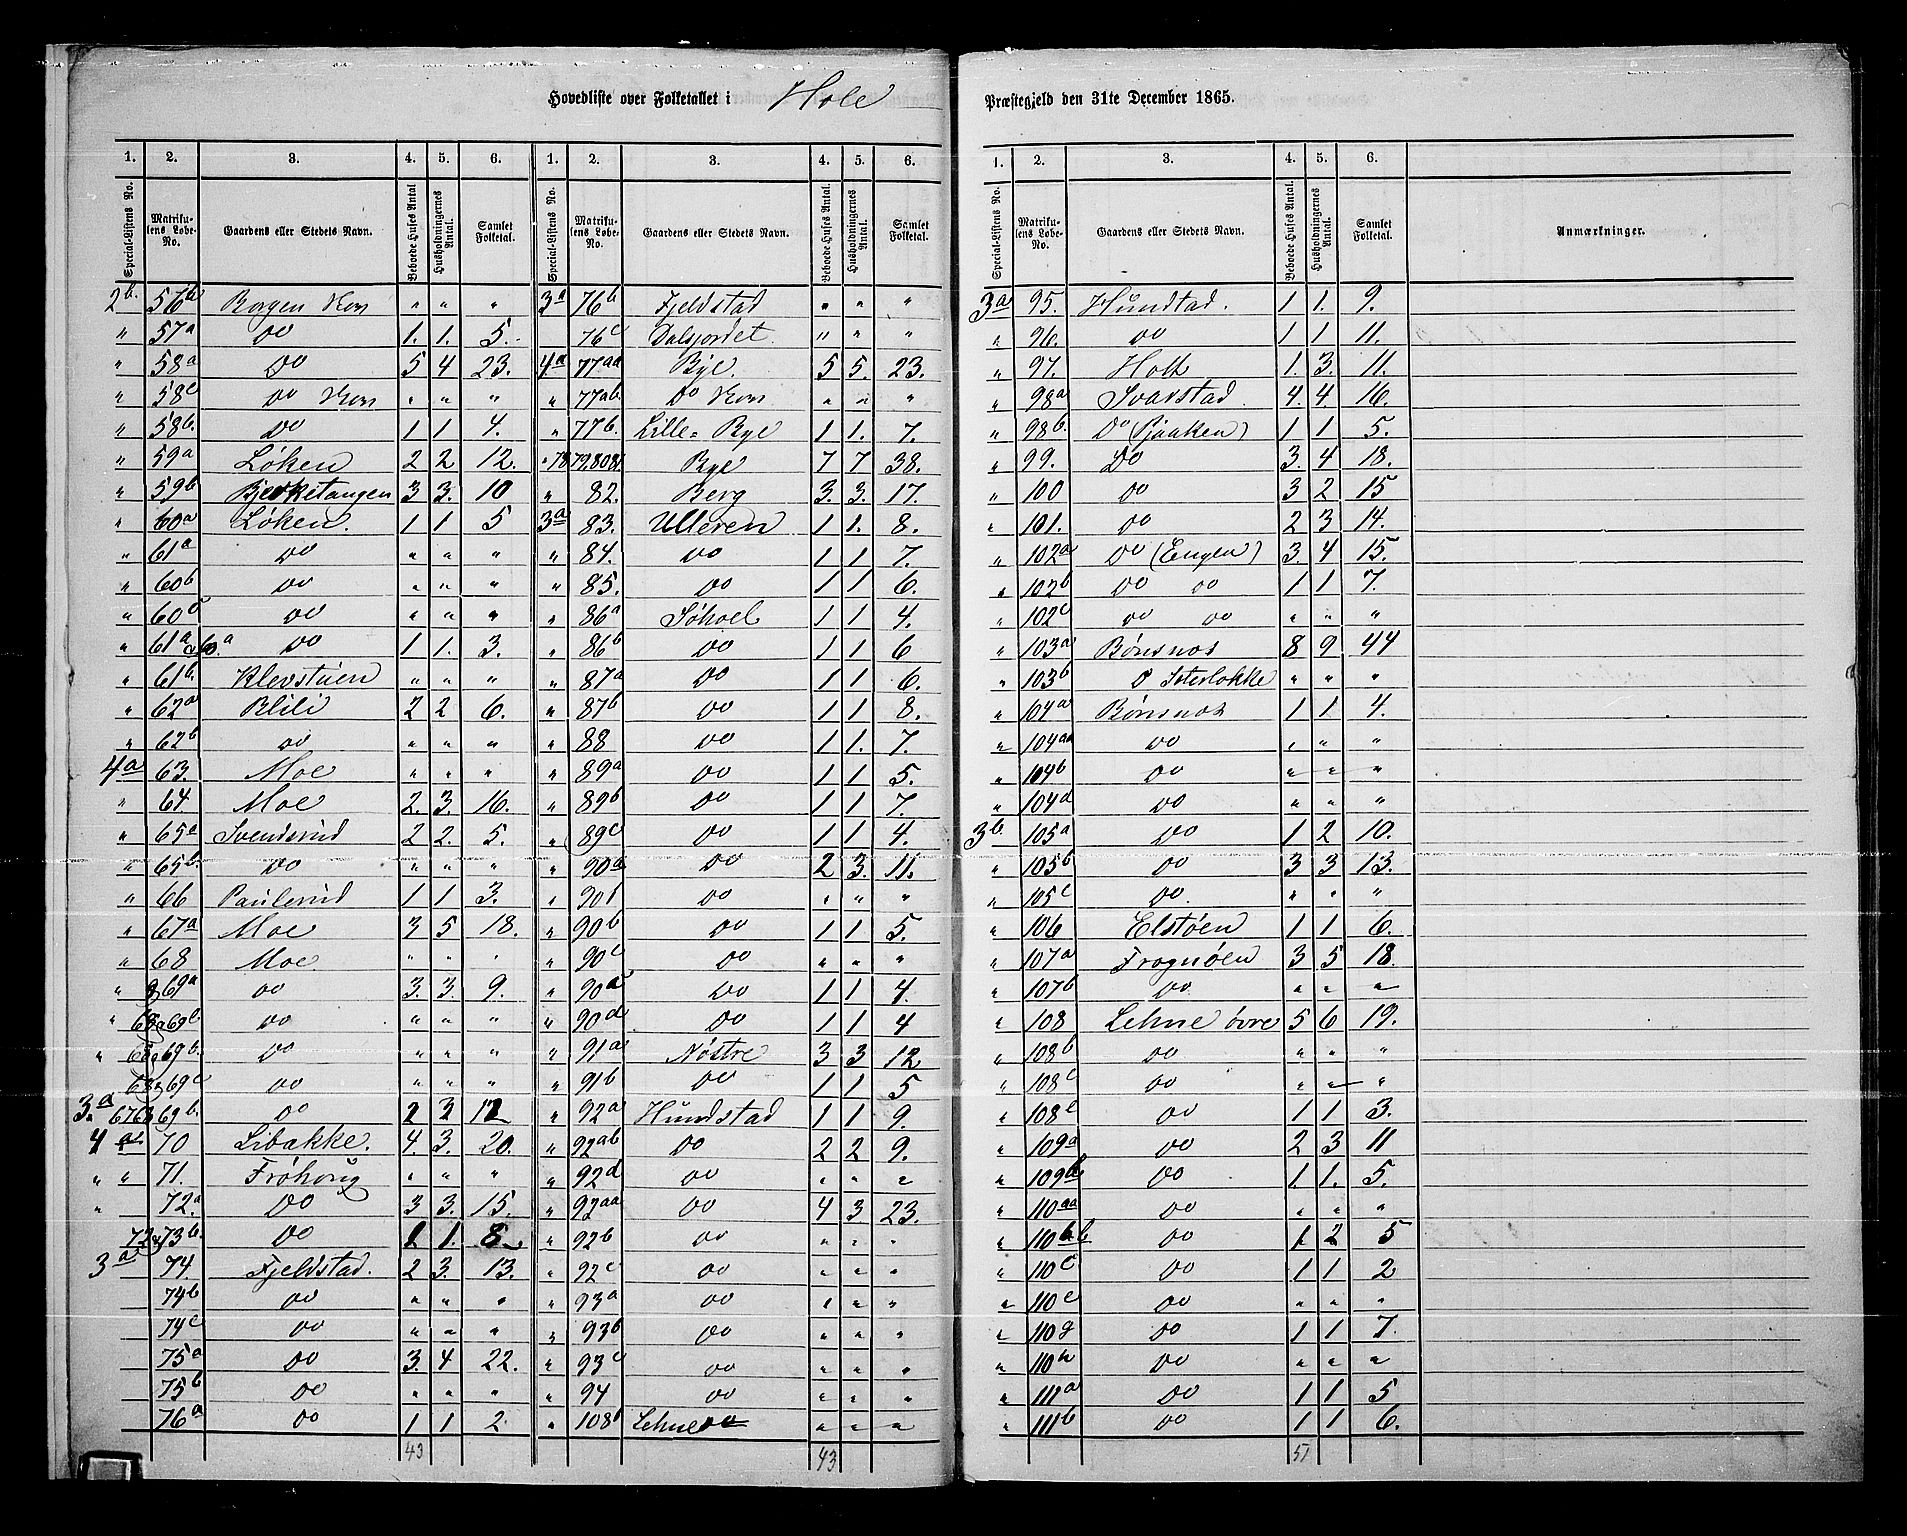 Hovedliste over Folketallet i Hole
Præstegjeld den 31te December 1865.
1. 2. 3. 4. 5. 6. 1. 2. 3. 4. 5. 6.
Special-Listens No. Matrikulens Løbe-No. Gaardens eller Stedets Navn. Beboede Huses Antal Husholdningernes Antal. Samlet Folketal. Special-Listens No. Matrikulens Løbe-No. Gaardens eller Stedets Navn. Beboede Huses Antal. Husholdningernes Antal. Samlet Folketal.
2b. 56b Borgen " " "
" 57a Do 1. 1. 5.
" 58a Do 5 4 23.
" 58c Do " " "
" 58b. Do 1 1 4.
" 59a Løken 2 2 12.
" 59b Bjerketangen 3 3. 10
" 60a Løken. 1 1 5
" 61a Do " " "
" 60b Do " " "
" 60c Do " " "
" 61a Do 1 1. 3.
" 61b. Klevstuen " " "
" 62a Blili 2 2 6.
" 62b Do " " "
4a 63. Moe " " "
" 64. Moe 2. 3. 16.
" 65a Svendsrud 2 2. 5.
" 65b. Do " " "
" 66 Paulsrud 1 1 3.
" 67a Moe 3 5 18.
" 68 Moe " " "
" 69a Do 3. 3. 9.
" 68 & 69b Do " " "
" 69b. Do " " "
68 & 69c Do " " "
3a 67 68 69b. Do 2 3 12
4a 70 Libakke. 4. 3. 20.
" " 71. Frøhoug " " "
" 72.a Do 3 3. 15.
72 & 73b. Do 1 1. 8
3a 74. Fjeldstad. 2 3. 13.
74b Do " " "
74c Do " " "
75a Do 3. 4 22.
75b Do " " "
76a Do 1 1 2
43
3a 76b Fjeldstad " " "
76c Dalsjordet " " "
4a 77aa Bye. 5 5. 23.
" 77ab. Do " " "
" 77b. Lille-Bye 1 1. 7.
" 78 79.80 81. Bye 7 7 38.
" 82. Berg 3. 3. 17.
3a 83. Ulleren 1 1. 8.
" 84. Do 1 1 7.
" 85. Do 1 1 6.
" 86a Søhoel 1 1 4.
" 86b Do 1 1 6
" 87a Do 1 1 6.
" 87b Do 1 1 8.
" 88 Do 1 1. 7.
" 89a Do 1 1 5.
" 89b Do 1 1 7.
" 89c Do 1 1 4.
" 90a Do 2 3. 11.
" 90f Do " " "
" 90b Do 1 1 5.
" 90c Do " " "
" 90a Do 1 1 4.
" 90d Do 1 1 4
" 91a Nøstre 3 3 12
" 91b Do 1 1 5
" 92a Hundstad 1 1 9.
" 92ab Do 2 2 9.
" 92d Do " " "
" 92aa Do 4 3 23.
" 92b Do " " "
" 92c Do " " "
" 93a Do " " "
" 93b Do " " "
" 93c Do " " "
" 94 Do " " "
" 108f Lehne " " "
43
1. 2. 3. 4. 5. 6.
Special-Listens No. Matrikulens Løbe-No. Gaardens eller Stedets Navn. Beboede Huses Antal. Husholdningernes Antal. Samlet Folketal. Anmærkninger.
3a 95. Hundtad. 1 1. 9.
" 96. Do 1 1 11.
" 97. Holt 1. 3. 11.
" 98a Svarstad. 4. 4. 16.
" 98b. Do (Pjaaken) 1 1 5.
" 99. Do 3. 4 18.
" 100 Do 3 2 15
" 101. Do 2 3 14.
" 102a Do (Engen) 3. 4 15.
" 102b Do Do 1 1 7.
" 102c Do Do " " "
" 103a Bønsnæs 8 9 44
" 103b D Sterlokke " " "
" 104a Bønsnæs 1 1 4.
" 104aa Do " " "
" 104b Do " " "
" 104d Do " " "
3b. 105a Do 1 2 10.
" 105b Do 3 3 13.
" 105c Do. " " "
" 106 Elstøen 1 1 6.
" 107a Frognøen 3 5 18.
" 107b Do " " "
" 108 Lehne øvre 5 6 19.
" 108b Do " " "
" 108c Do " " "
" 108e Do 1 1 3.
" 109a Do 2 3 11
" 109b Do 1. 1. 5.
" 110aa Do " " "
" 110bb Do 1 2 5
" 110c Do 1 1 2
" 110e Do " " "
" 110g Do 1 1 7.
" 110h Do " " "
" 111a Do 1 1 5
" 111b Do 1 1 6.
51